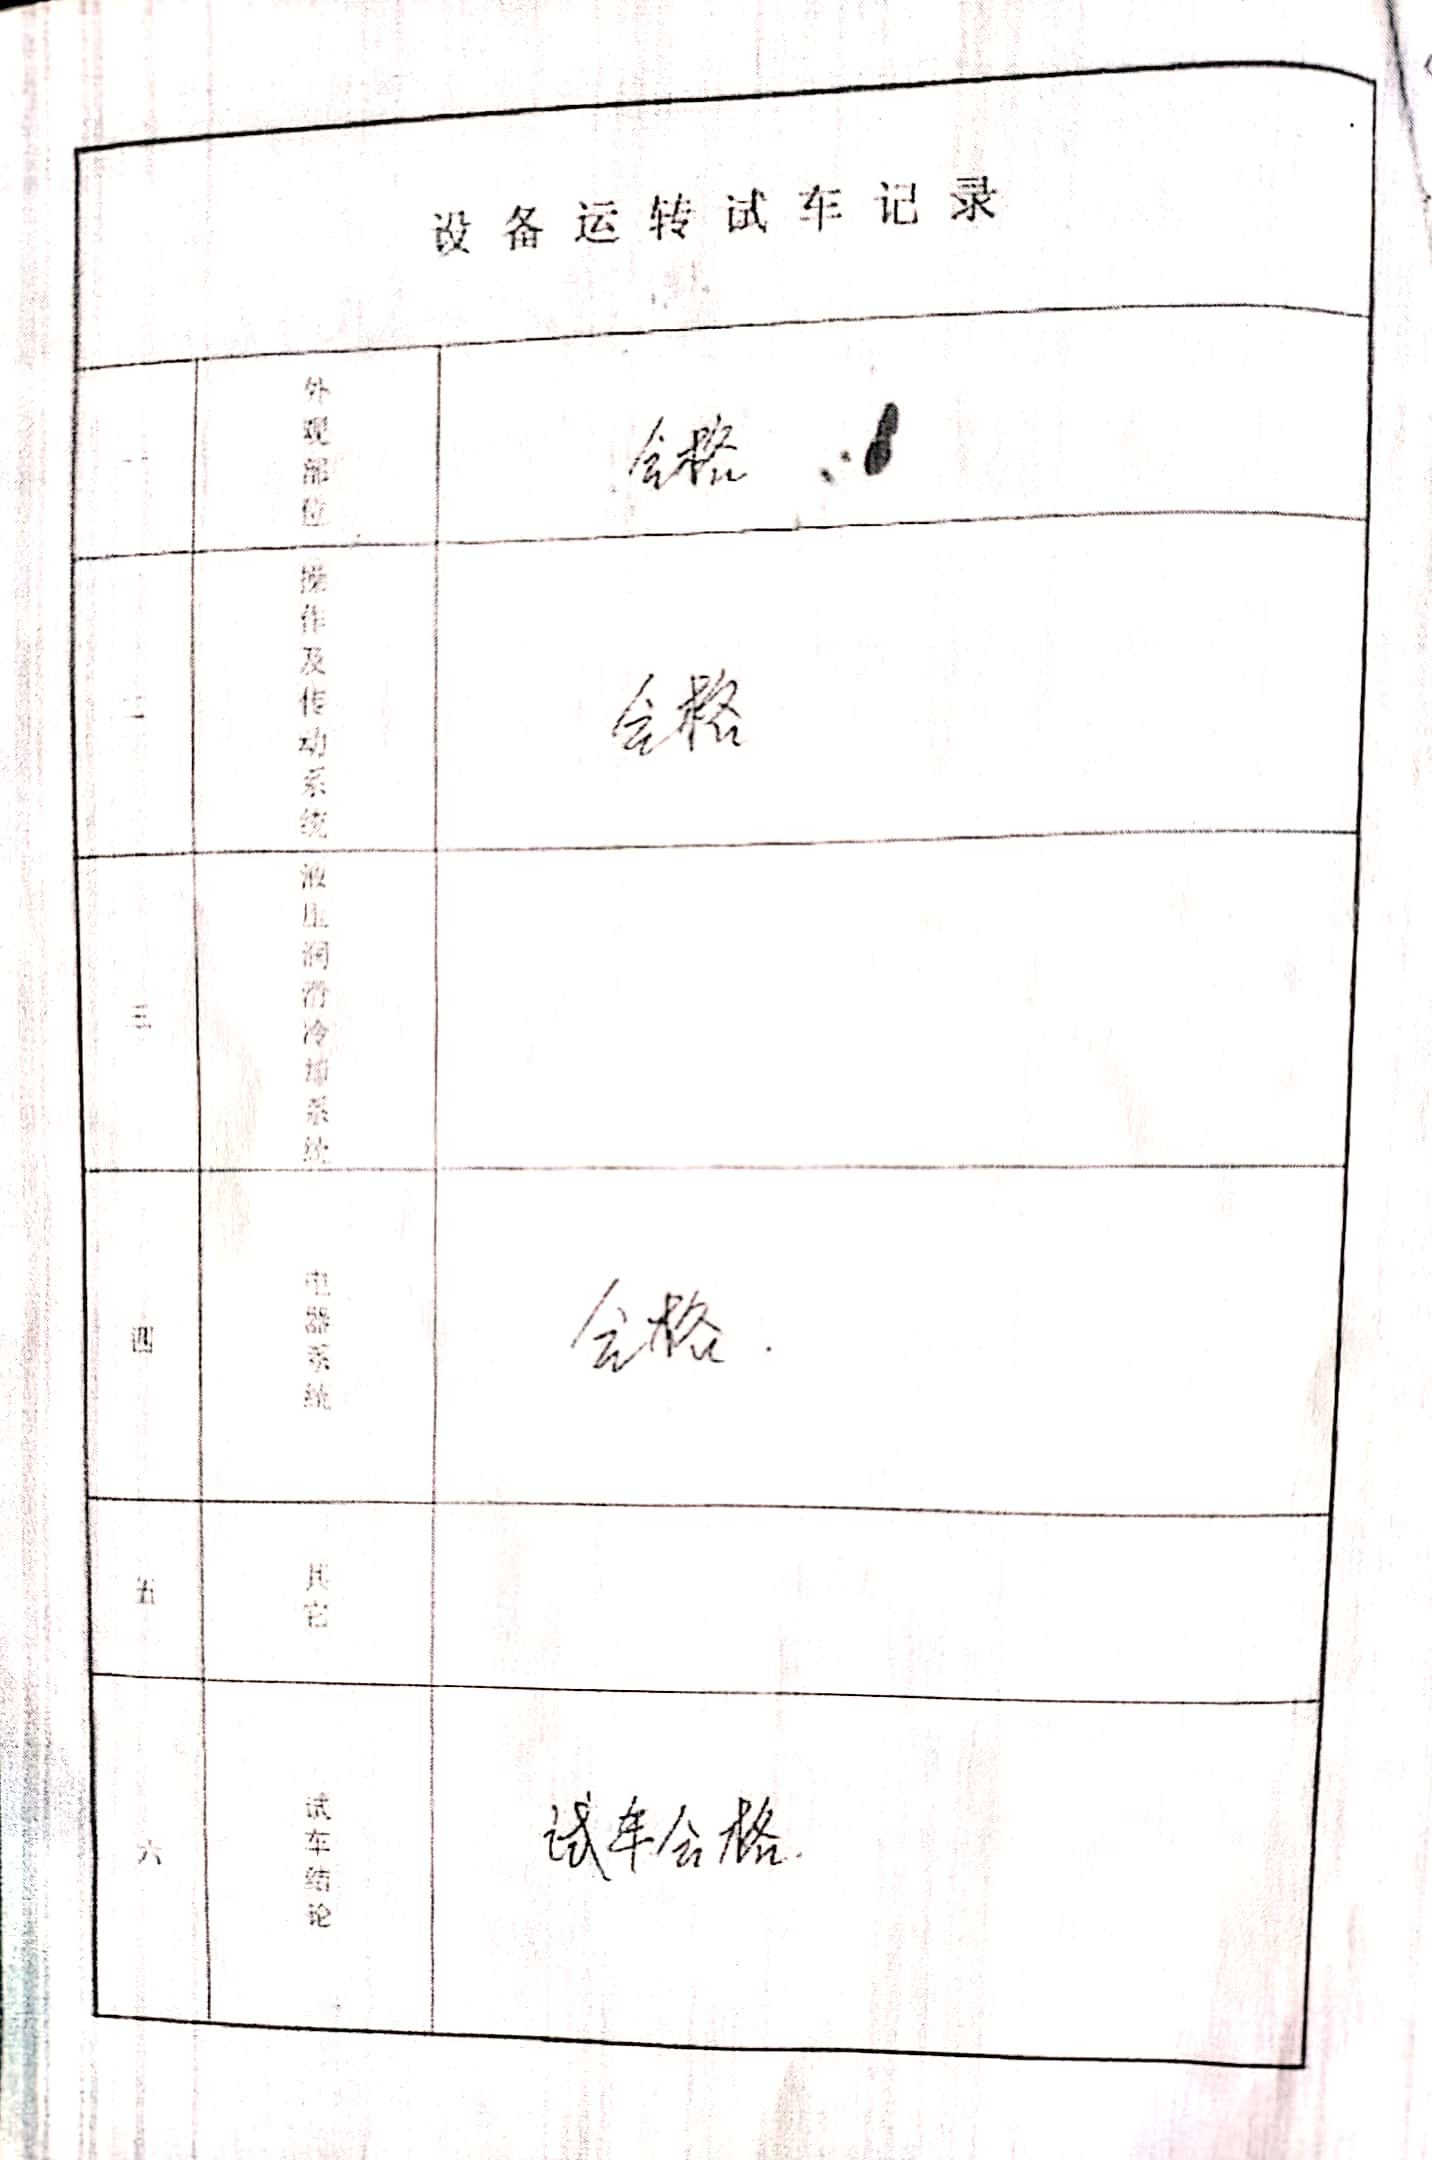 设备运转试车记录
一 外观部位 合格
二 操作及传动系统 合格
三 液压润滑冷却系统
四 电器系统 合格.
五 其它
六 试车结论 试车合格.